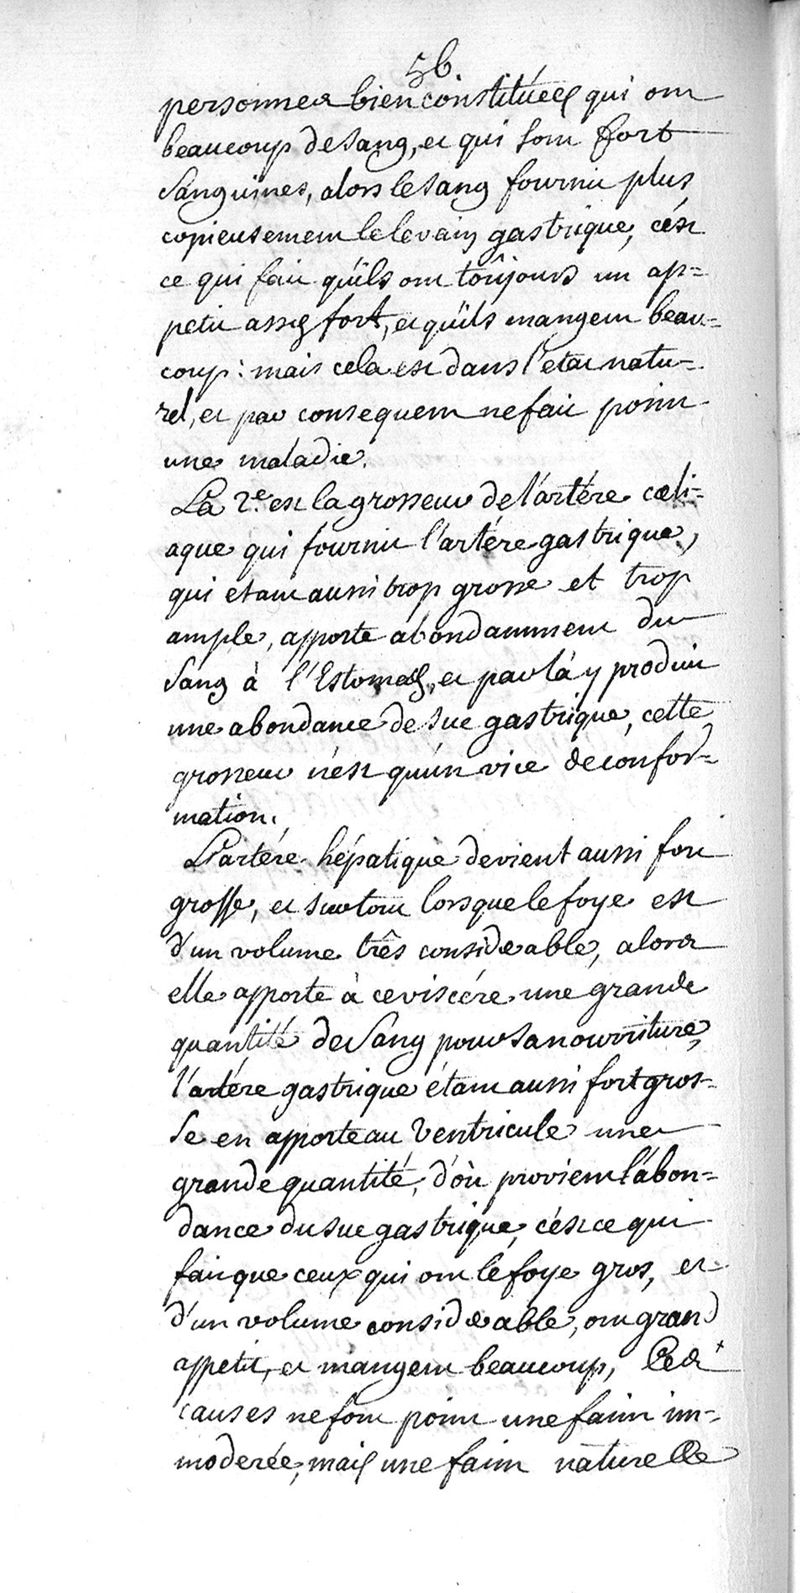 56
personnes bien constituées qui ont
beaucoup de sang, et qui sont fort
sanguines, alors le sang fournit plus
copieusement le levain gastrique, cést
ce qui fait qu'ils ont toûjours un ap=
petit assez fort, et qu'ils mangent beau=
coup: mais cela est dans l'etat natu=
rel, et par consequent ne fait point
une maladie.
La 2.e est la grosseur de l'artére cœli=
aque qui fournit l'artére gastrique,
qui etant aussi trop grosse et trop
ample, apporte abondamment du
sang à l'Estomac, et par là y produit
une abondance de suc gastrique, cette
grosseur n'est qu'un vice de confor=
mation.
L'artére hépatique devient aussi fort
grosse, et surtout lorsque le foye est
d'un volume três considerable, alors
elle apporte à ce viscére une grande
quantité de sang pour sa nourriture,
l'artére gastrique étant aussi fort gros=
se en apporte au Ventricule une
grande quantité, d'où provient l'abon=
dance du suc gastrique, c'ést ce qui
fait que ceux qui ont le foye gros, et
d'un volume considerable, ont grand
appetit, et mangent beaucoup, Ces
causes ne font point une faim im=
moderée, mais une faim naturelle